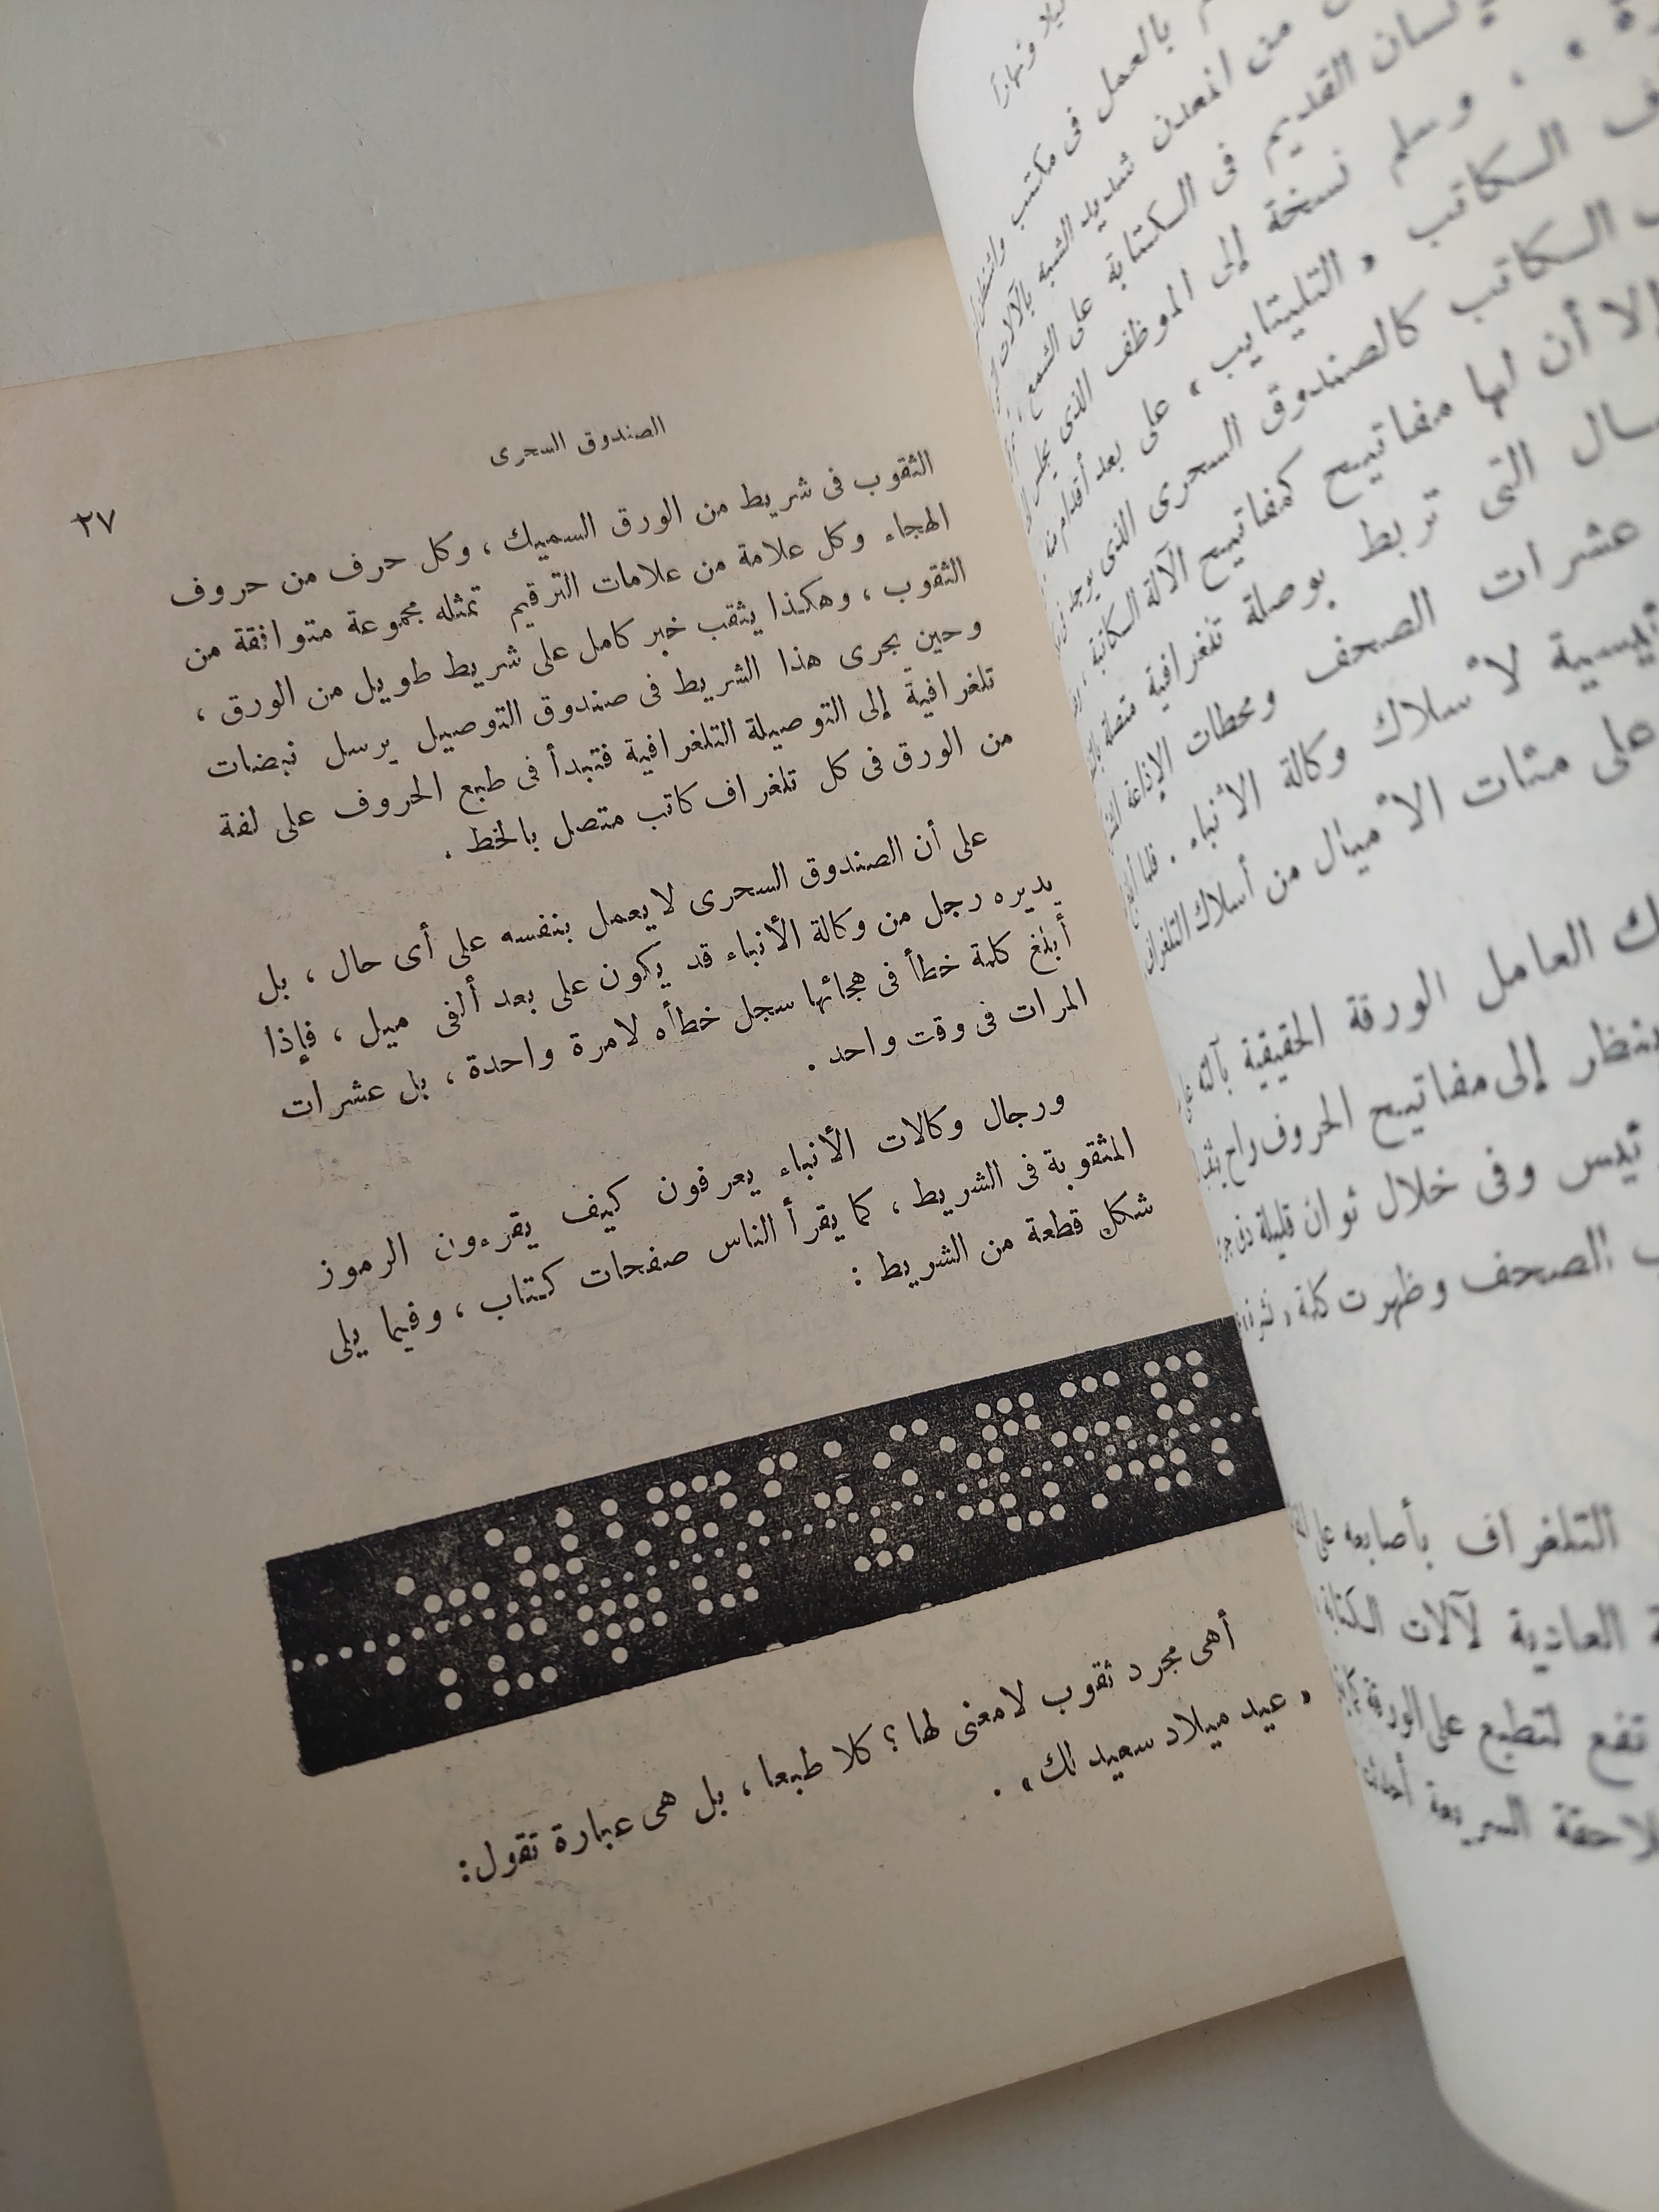 بالعمل فى مكتب
من المعدن شديد الشبه بالآلات
الإنسان القديم فى الكتابة على الشمع
، وسلم نسخة إلى الموظف الذى يجلس
الكاتب « التليتايب » على بعد أقدام منه
الكاتب كالصندوق السحرى الذى يوجد
إلا أن لها مفاتيح كمفاتيح الآلة الكاتبة ،
التى تربط بوصلة تلغرافية متصلة
عشرات الصحف ومحطات الإذاعة
لأسلاك وكالة الأنباء . فلما
على مئات الأميال من أسلاك التلغراف
العامل الورقة الحقيقية بآلته
ينظر إلى مفاتيح الحروف راح
وفى خلال ثوان قليلة
الصحف وظهرت كلمة
التلغراف بأصابعه على
العادية لآلات الكتابة
لتطبع على الورقة
السريعة
الصندوق السحرى
٢٧
الثقوب فى شريط من الورق السميك ، وكل حرف من حروف
الهجاء وكل علامة من علامات الترقيم تمثله مجموعة متوافقة من
الثقوب ، وهكذا يثقب خبر كامل على شريط طويل من الورق ،
وحين يجرى هذا الشريط فى صندوق التوصيل يرسل نبضات
تلغرافية إلى التوصيلة التلغرافية فتبدأ فى طبع الحروف على لفة
من الورق فى كل تلغراف كاتب متصل بالخط .
على أن الصندوق السحرى لا يعمل بنفسه على أى حال ، بل
يديره رجل من وكالة الأنباء قد يكون على بعد ألفى ميل ، فإذا
أبلغ كلمة خطأ فى هجائها سجل خطأه لا مرة واحدة ، بل عشرات
المرات فى وقت واحد .
ورجال وكالات الأنباء يعرفون كيف يقرءون الرموز
المثقوبة فى الشريط ، كما يقرأ الناس صفحات كتاب ، وفيما يلى
شكل قطعة من الشريط :
أهى مجرد ثقوب لا معنى لها ؟ كلا طبعا ، بل هى عبارة تقول :
« عيد ميلاد سعيد لك » .